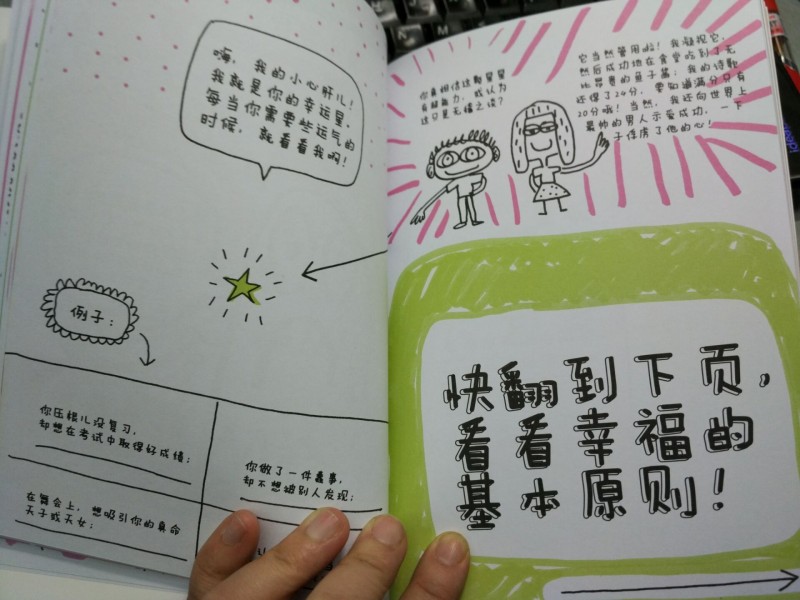 嗨，我的小心肝儿！
我就是你的幸运星，
每当你需要些运气的
时候，就看看我啊！
例子：
你压根儿没复习，
却想在考试中取得好成绩：
你做了一件蠢事，
却不想被别人发现：
在舞会上，想吸引你的真命
天子或天女：
你真相信这颗星星
有超能力，我认为
这只是无稽之谈？
它当然管用啦！我凝视它，
然后成功地在食堂吃到了无
比昂贵的鱼子酱；我的诗歌
还得了24分，要知道满分只有
20分哦！当然，我还向世界上
最帅的男人示爱成功，一下
子俘虏了他的心！
快翻到下页，
看看幸福的
基本原则！